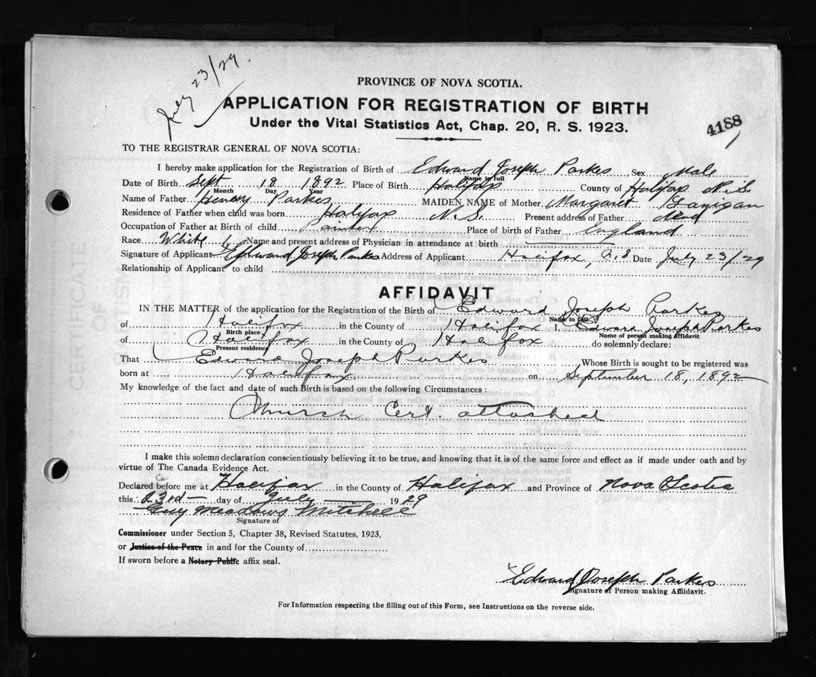 July 23/29
PROVINCE OF NOVA SCOTIA.
APPLICATION FOR REGISTRATION OF BIRTH
Under the Vital Statistics Act, Chap. 20, R. S. 1923.
4188
TO THE REGISTRAR GENERAL OF NOVA SCOTIA:
I hereby make application for the Registration of Birth of Edward Joseph Parkes Sex Male
Name in full
Date of Birth Sept 18 1892 Place of Birth Halifax County of Halifax N.S
Month Day Year
Name of Father Henry Parkes MAIDEN NAME of Mother Margaret Lanigan
Residence of Father when child was born Halifax N.S. Present address of Father dead
Occupation of Father at Birth of child Painter Place of birth of Father England
Race White Name and present address of Physician in attendance at birth
Signature of Applicant Edward Joseph Parkes Address of Applicant Halifax, N.S. Date July 23/29
Relationship of Applicant to child
AFFIDAVIT
IN THE MATTER of the application for the Registration of the Birth of Edward Joseph Parkes
Name in full
of Halifax in the County of Halifax I, Edward Joseph Parkes
Birth place Name of person making Affidavit
of Halifax in the County of Halifax do solemnly declare:
Present residency
That Edward Joseph Parkes Whose Birth is sought to be registered was
born at Halifax on September 18, 1892
My knowledge of the fact and date of such Birth is based on the following Circumstances:
Church Cert. attached
I make this solemn declaration conscientiously believing it to be true, and knowing that it is of the same force and effect as if made under oath and by
virtue of The Canada Evidence Act.
Declared before me at Halifax in the County of Halifax and Province of Nova Scotia
this 23rd day of July 1929
Guy Meadows Mitchell
Signature of
Commissioner under Section 5, Chapter 38, Revised Statutes, 1923,
or Justice of the Peace in and for the County of
If sworn before a Notary Public affix seal.
Edward Joseph Parkes
Signature of Person making Affidavit.
For Information respecting the filling out of this Form, see Instructions on the reverse side.